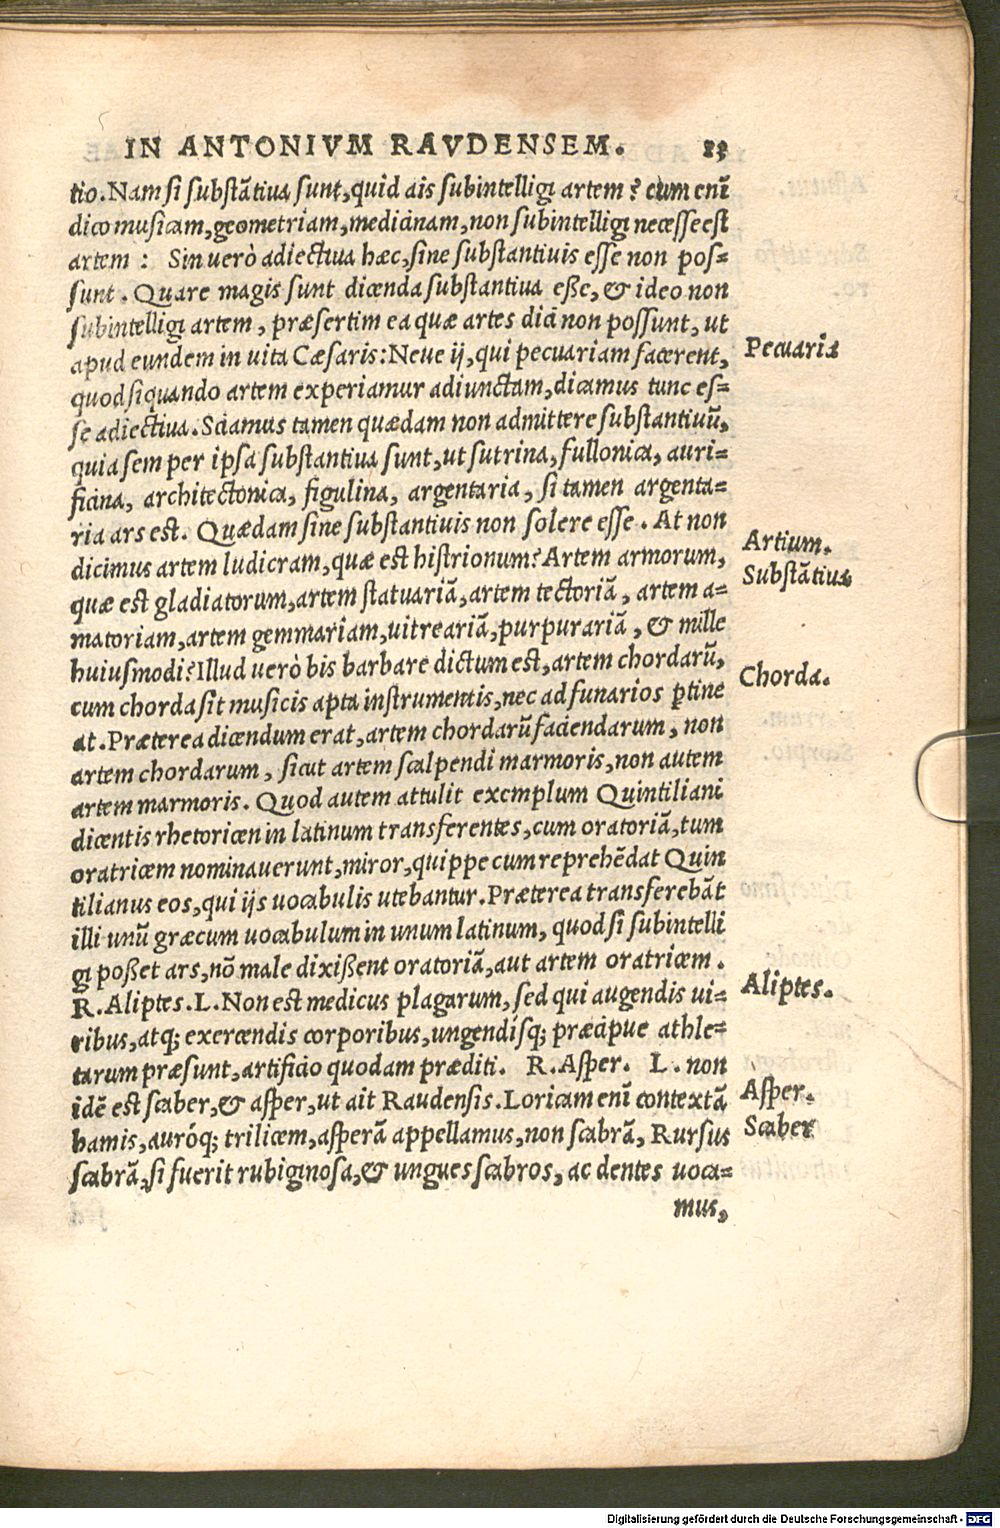 IN ANTONIVM RAVDENSEM. 23
tio. Nam si substãtiua sunt, quid ais subintelligi artem? cum enĩ
dico musicam, geometriam, medicinam, non subintelligi necesse est
artem : Sin uerò adiectiua hæc, sine substantiuis esse non pos=
sunt. Quare magis sunt dicenda substantiua eße, & ideo non
subintelligi artem, præsertim ea quæ artes dici non possunt, ut
apud eundem in uita Cæsaris: Neue ij, qui pecuariam facerent,
Pecuaria
quod siquando artem experiamur adiunctam, dicamus tunc es=
se adiectiua. Sciamus tamen quædam non admittere substantiuũ,
quia semper ipsa substantiua sunt, ut sutrina, fullonica, auri=
ficina, architectonica, figulina, argentaria, si tamen argenta=
ria ars est. Quædam sine substantiuis non solere esse. At non
Artium.
dicimus artem ludicram, quæ est histrionum? Artem armorum,
Substãtiua
quæ est gladiatorum, artem statuariã, artem tectoriã, artem a=
matoriam, artem gemmariam, uitreariã, purpurariã, & mille
huiusmodi? Illud uerò bis barbare dictum est, artem chordarũ,
Chorda.
cum chorda sit musicis apta instrumentis, nec ad funarios p̱tine
at. Præterea dicendum erat, artem chordarũ faciendarum, non
artem chordarum, sicut artem scalpendi marmoris, non autem
artem marmoris. Quod autem attulit exemplum Quintiliani
dicentis rhetoricen in latinum transferentes, cum oratoriã, tum
oratricem nominauerunt, miror, quippe cum reprehẽdat Quin
tilianus eos, qui ijs uocabulis utebantur. Præterea transferebãt
illi unũ græcum uocabulum in unum latinum, quod si subintelli
gi poßet ars, nõ male dixißent oratoriã, aut artem oratricem.
Aliptes.
R. Aliptes. L. Non est medicus plagarum, sed qui augendis ui=
ribus, atq; exercendis corporibus, ungendisq; præcipue athle=
tarum præsunt, artificio quodam præditi. R. Asper. L. non
Asper.
idẽ est scaber, & asper, ut ait Raudensis. Loricam enĩ contextã
Scaber
hamis, auróq; trilicem, asperã appellamus, non scabrã, Rursus
scabrã, si fuerit rubiginosa, & ungues scabros, ac dentes uoca=
mus,
Digitalisierung gefördert durch die Deutsche Forschungsgemeinschaft - DFG